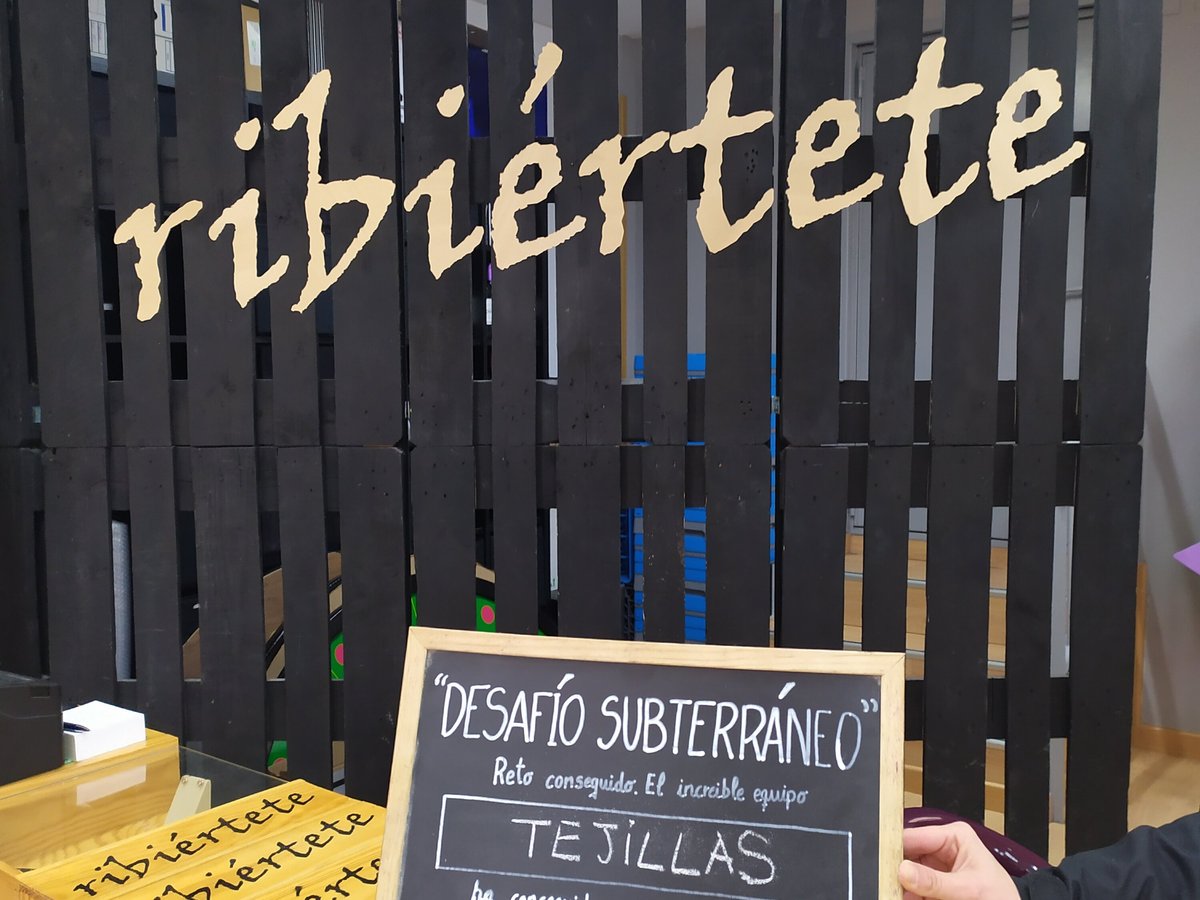 ribiértete
"DESAFÍO SUBTERRÁNEO"
Reto conseguido. El increible equipo
TEJILLAS
ha conseguido
ribiértete
ribiértete